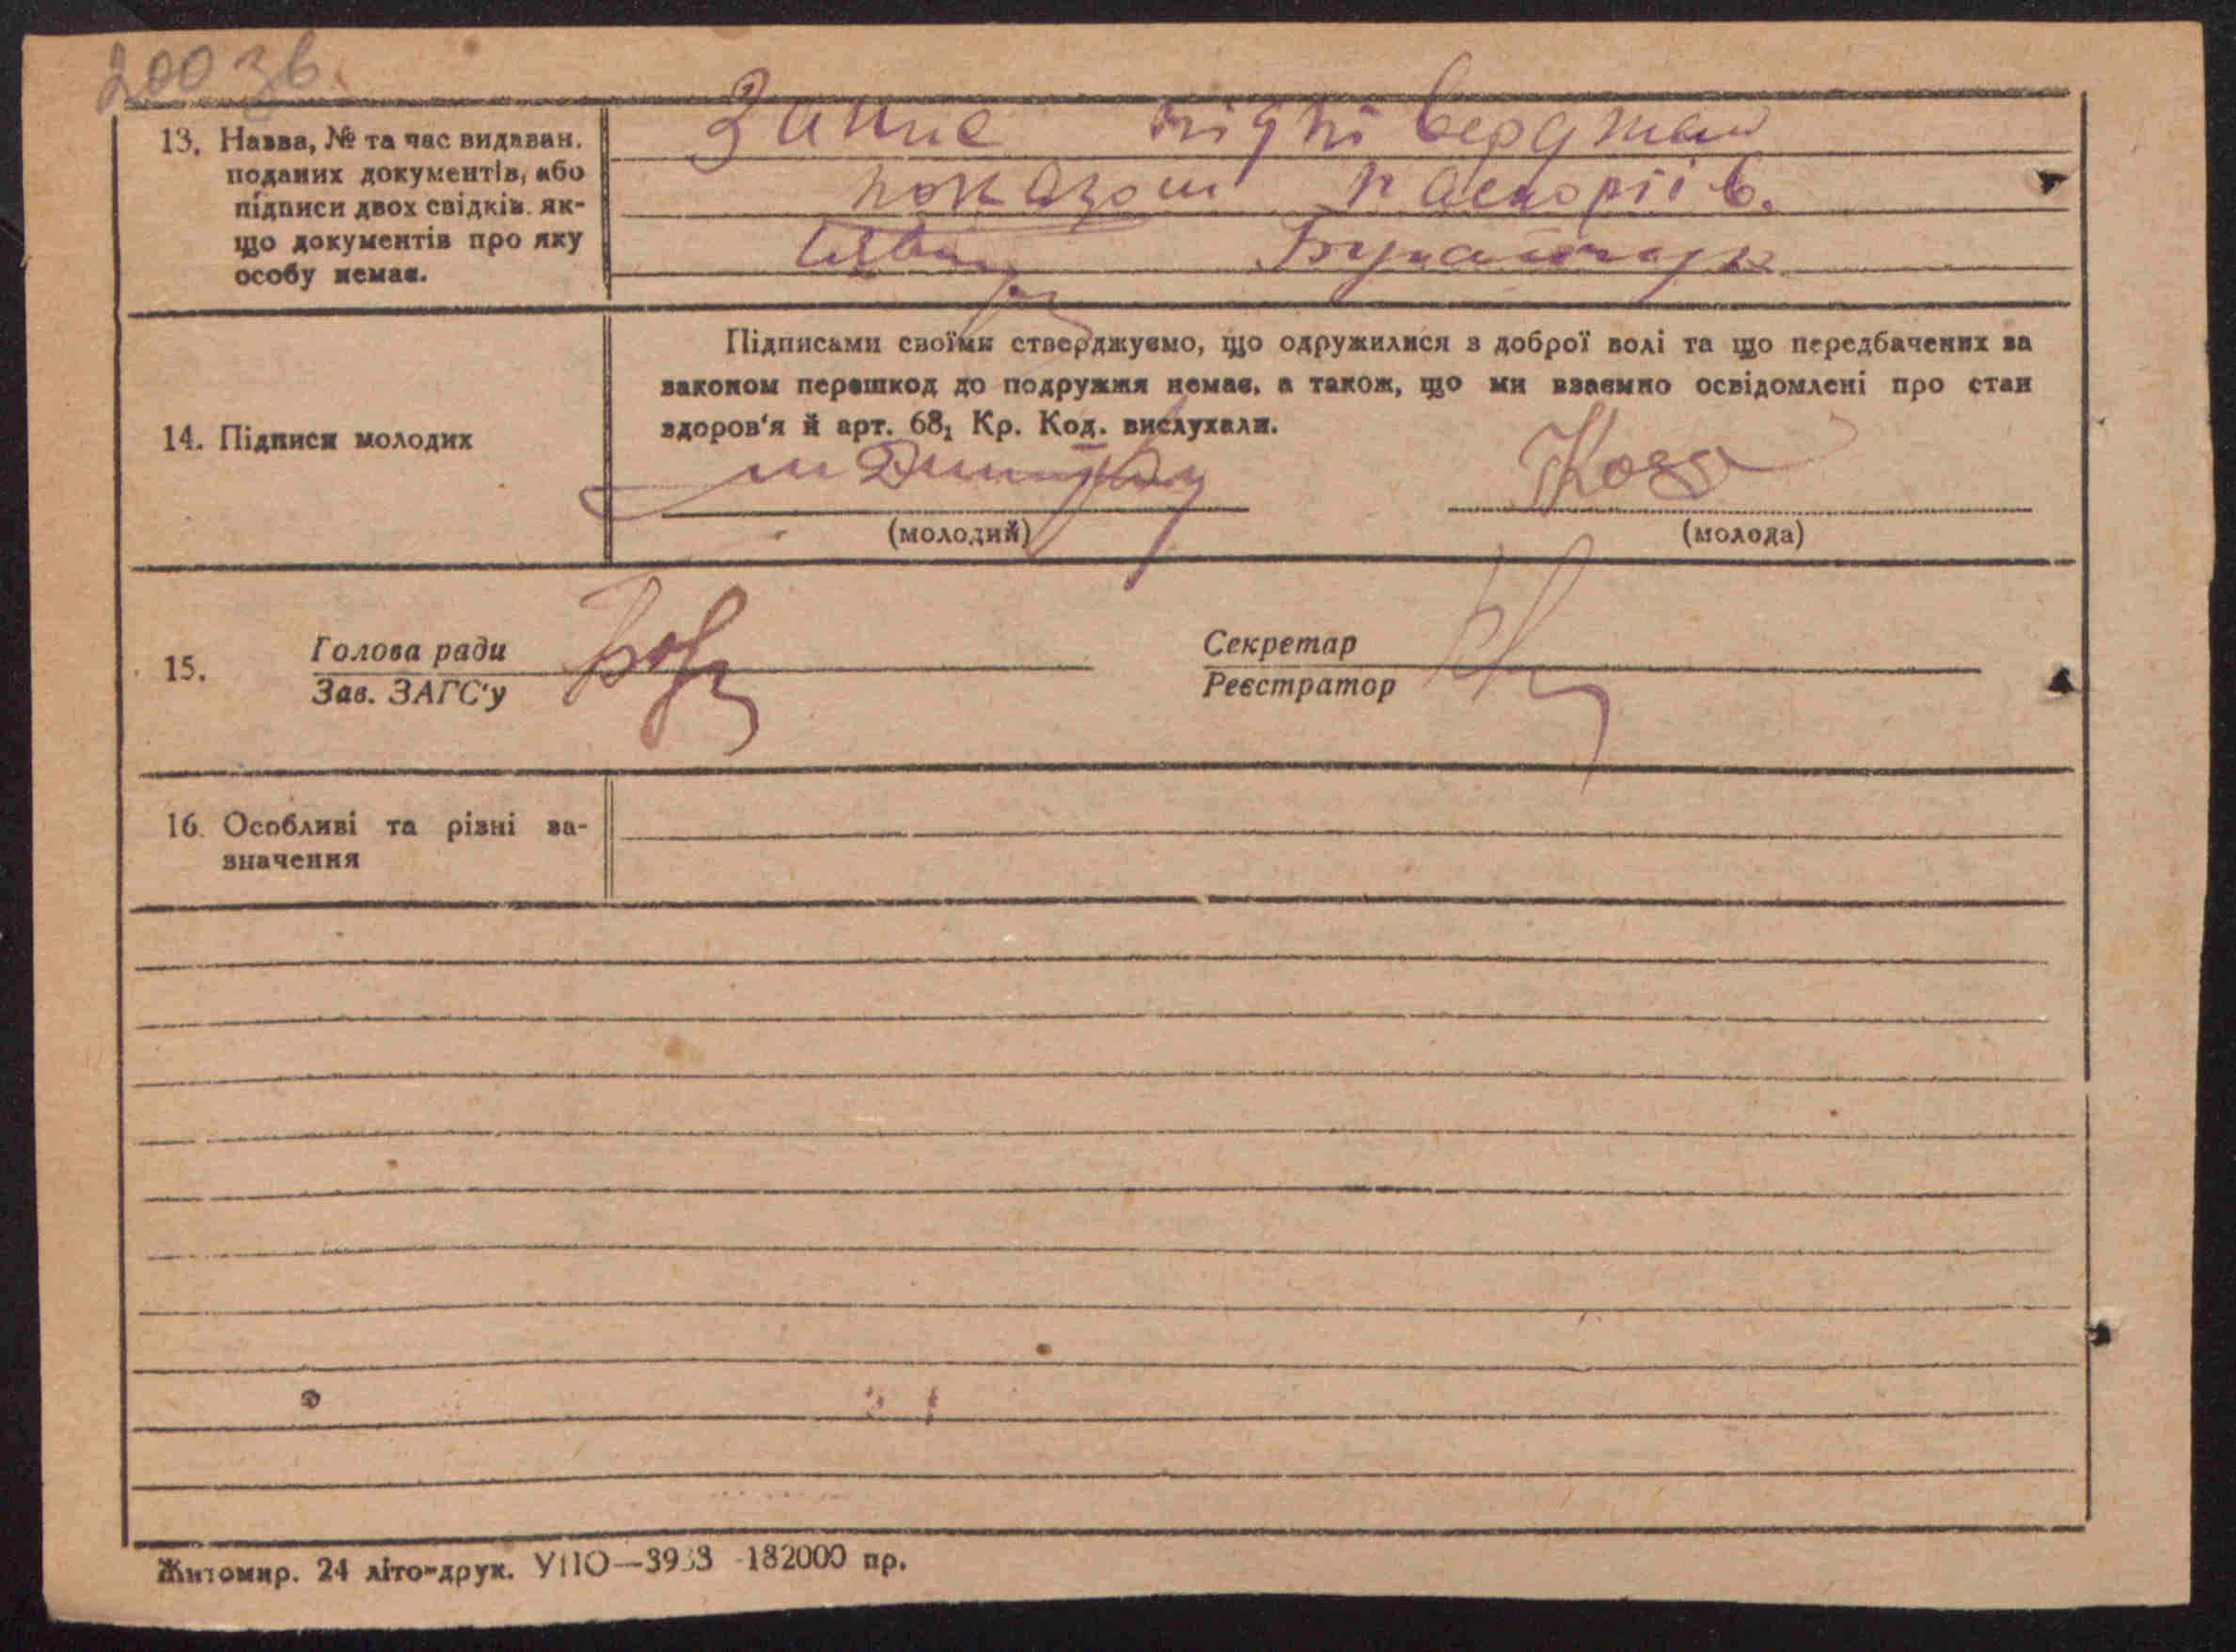 200 зв.
13. Назва, № та час видаван.
поданих документів, або
підписи двох свідків. як-
що документів про яку
особу немає.
Запис підтверджен
показом паспортів.
14. Підписи молодих
Підписами своїми стверджуємо, що одружилися з доброї волі та що передбачених за
законом перешкод до подружжя немає, а також, що ми взаємно освідомлені про стан
здоров'я й арт. 68₁ Кр. Код. вислухали.
(молодий) (молода)
15. Голова ради
Зав. ЗАГС'у
Секретар
Реєстратор
16. Особливі та різні за-
значення
Житомир. 24 літо-друк. УПО—3933 -182000 пр.